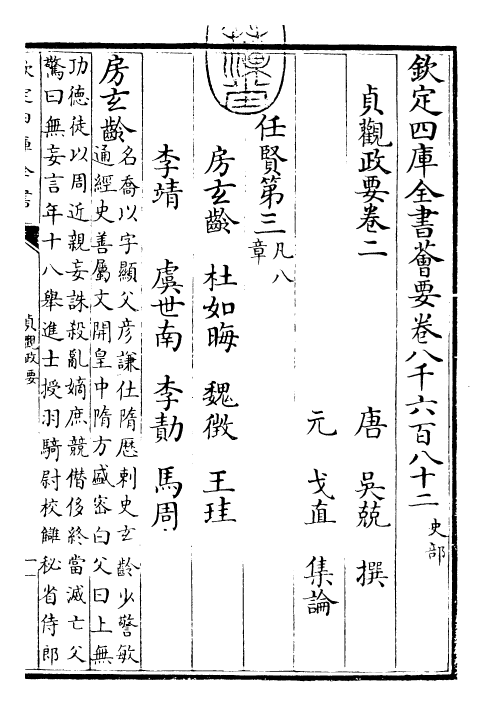 欽定四庫全書薈要卷八千六百八十二 史部
貞觀政要卷二
唐 吳兢 撰
元 戈直 集論
任賢第三 凡八章
房玄齡 杜如晦 魏徵 王珪
李靖 虞世南 李勣 馬周
房玄齡 名喬以字顯父彥謙仕隋歷刺史玄齡少警敏
通經史善屬文開皇中隋方盛密白父曰上無
功德徒以周近親妄誅殺亂嫡庶競僭侈終當滅亡父
驚曰無妄言年十八舉進士授羽騎尉校讎秘省侍郎
欽定四庫全書
貞觀政要
一